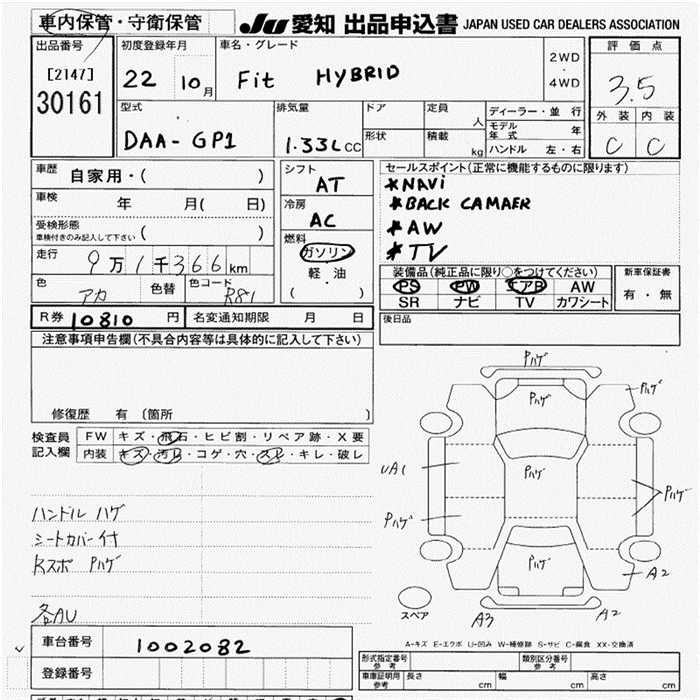 車内保管・守衛保管
JU 愛知 出品申込書 JAPAN USED CAR DEALERS ASSOCIATION
出品番号
[2147]
30161
初度登録年月
22 10月
車名・グレード
Fit HYBRID
2WD
・
4WD
評価点
3.5
外装 内装
C C
型式
DAA-GP1
排気量
1.33L CC
ドア
形状
定員 人
積載 kg
ディーラー・並行
モデル年式 年
ハンドル 左・右
車歴 自家用・( )
車検 年 月( 日)
受検形態
車検付きのみ記入して下さい ( )
走行 9万1千366km
色 アカ
色替
色コード R81
シフト
AT
冷房
AC
燃料
ガソリン
軽・油
( )
セールスポイント(正常に機能するものに限ります)
*NAVi
*BACK CAMAER
*AW
*TV
装備品(純正品に限り○をつけてください)
PS PW エアB AW
SR ナビ TV カワシート
新車保証書
有・無
R券 10810 円
名変通知期限 月 日
後日品
注意事項申告欄(不具合内容等は具体的に記入して下さい)
修復歴 有 〔箇所 〕
検査員記入欄
FW キズ・飛石・ヒビ割・リペア跡・X要
内装 キズ・汚レ・コゲ・穴・スレ・キレ・破レ
ハンドル ハゲ
シートカバー付
Rスポ Pハゲ
各AU
Pハゲ
Pハゲ
Pハゲ
UA1
Pハゲ
Pハゲ
Pハゲ
Pハゲ
A2
A3
A2
スペア
A-キズ E-エクボ U-凹み W-補修跡 S-サビ C-腐食 XX-交換済
車台番号 1002082
登録番号
形式指定番号 参考
類別区分番号 参考
車庫証明用 参考
長さ cm
幅 cm
高さ cm